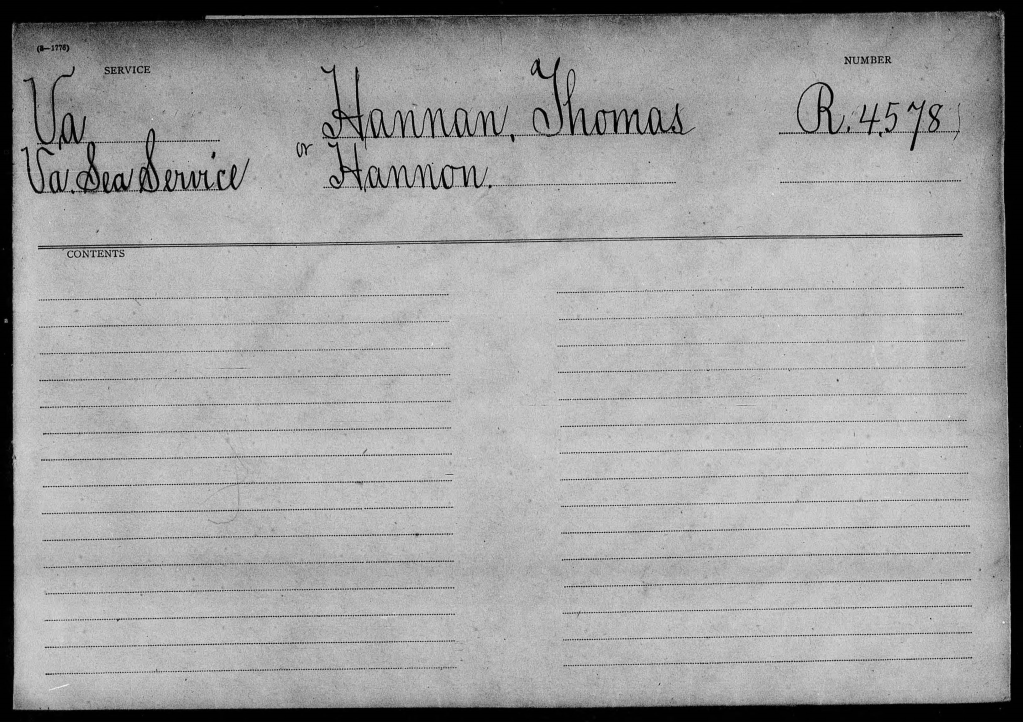 (3—1776)
SERVICE
NUMBER
Va
Hannan, Thomas
R. 4578
Va. Sea Service
or Hannon.
CONTENTS